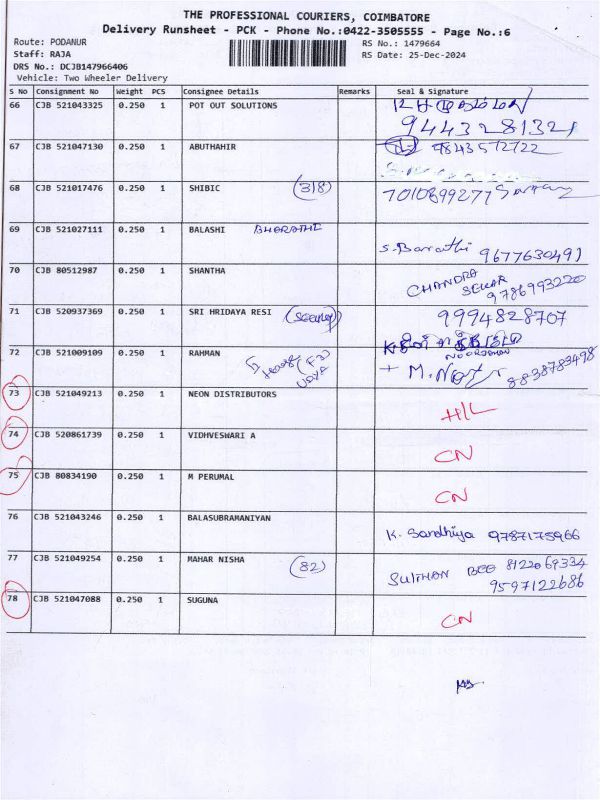 THE PROFESSIONAL COURIERS, COIMBATORE
Delivery Runsheet - PCK - Phone No.:0422-3505555 - Page No.:6
Route: PODANUR
Staff: RAJA
DRS No.: DCJB147966406
Vehicle: Two Wheeler Delivery
RS No.: 1479664
RS Date: 25-Dec-2024
S No Consignment No Weight PCS Consignee Details Remarks Seal & Signature
66 CJB 521043325 0.250 1 POT OUT SOLUTIONS
9443281321
67 CJB 521047130 0.250 1 ABUTHAHIR 9843572722
68 CJB 521017476 0.250 1 SHIBIC (318) 7010899277
69 CJB 521027111 0.250 1 BALASHI BHARATHI S. Barathi 9677630491
70 CJB 80512987 0.250 1 SHANTHA CHANDRA SEKAR 9786993220
71 CJB 520937369 0.250 1 SRI HRIDAYA RESI 9994828707
72 CJB 521009109 0.250 1 RAHMAN (F3) 8838783498
73 CJB 521049213 0.250 1 NEON DISTRIBUTORS H/L
74 CJB 520861739 0.250 1 VIDHVESWARI A CN
75 CJB 80834190 0.250 1 M PERUMAL CN
76 CJB 521043246 0.250 1 BALASUBRAMANIYAN K. Sandhiya 9787175966
77 CJB 521049254 0.250 1 MAHAR NISHA (82) SULTHAN BEE 8122069334
9597122686
78 CJB 521047088 0.250 1 SUGUNA CN